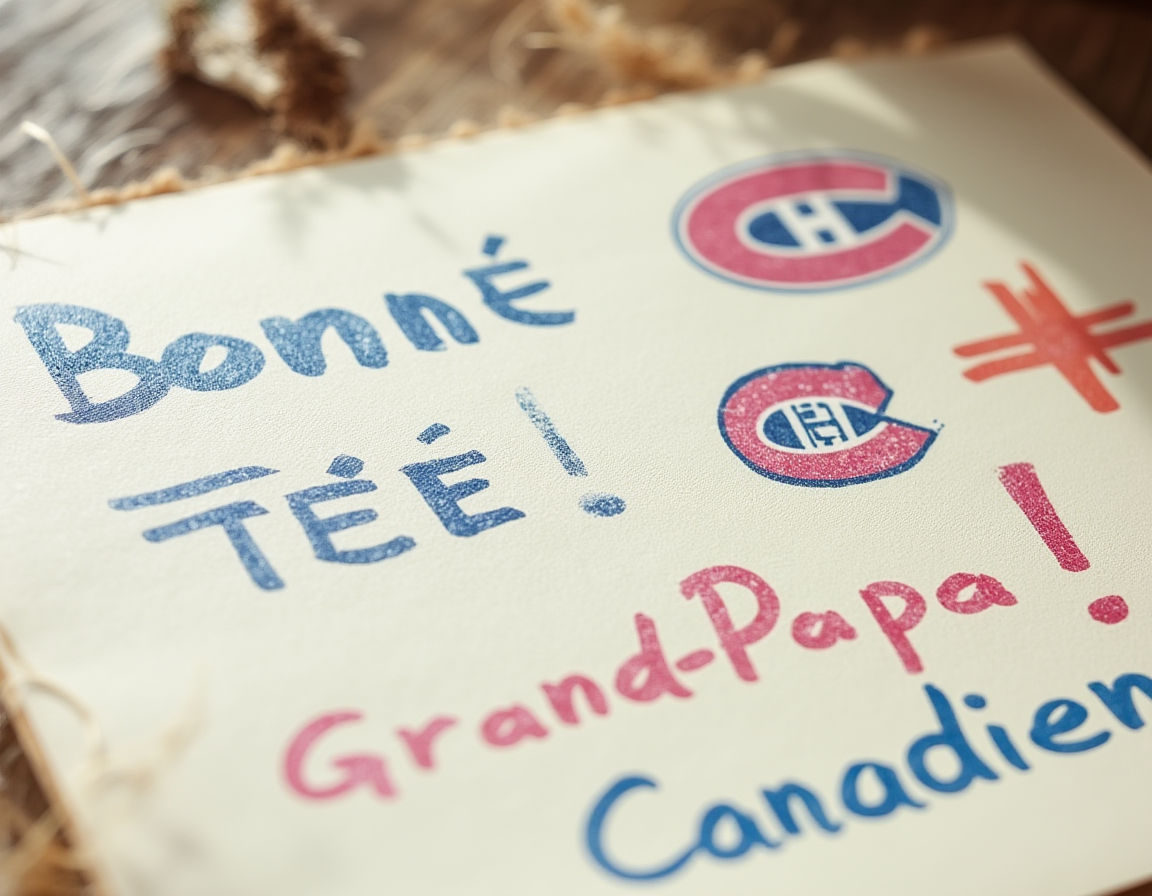 BonnÉ
TÉÉ!
Grand-Papa!
Canadien